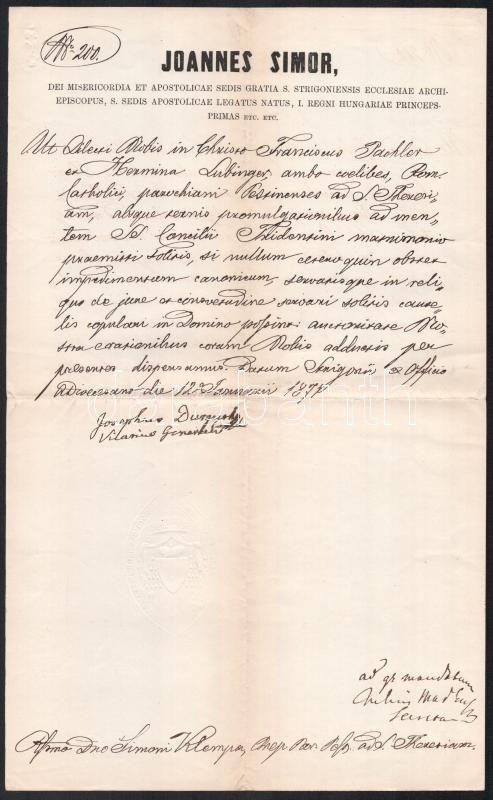 Nro 200.
JOANNES SIMOR,
DEI MISERICORDIA ET APOSTOLICAE SEDIS GRATIA S. STRIGONIENSIS ECCLESIAE ARCHI-
EPISCOPUS, S. SEDIS APOSTOLICAE LEGATUS NATUS, I. REGNI HUNGARIAE PRINCEPS-
PRIMAS ETC. ETC.
Ut Dilecti Nobis in Christo Franciscus Pachler
et Hermina Lubinger, ambo coelibes, Rom.
Catholici, parochiani Pestinenses ad S. Theresi-
am, absque ternis promulgationibus ad men-
tem SS. Concilii Tridentini matrimonio
praemitti solitis, si nullum ceteroquin obstet
impedimentum canonicum, servatisque in reli-
quo de jure et consvetudine servari solitis caute-
lis copulari in Domino possint: auctoritate No-
stra e rationibus coram Nobis adductis per
praesentes dispensamus. Datum Strigonii ex Officio
Dioecesano die 12a Januarii 187
Josephus
Vicarius Generalis
ad gr mandatum
Julius
Rssmo Dno Simoni Klempa, Praep. Par. Pest. ad S. Theresiam.